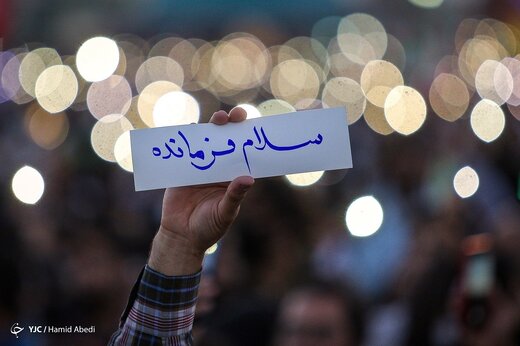 سلام فرمانده
YJC / Hamid Abedi